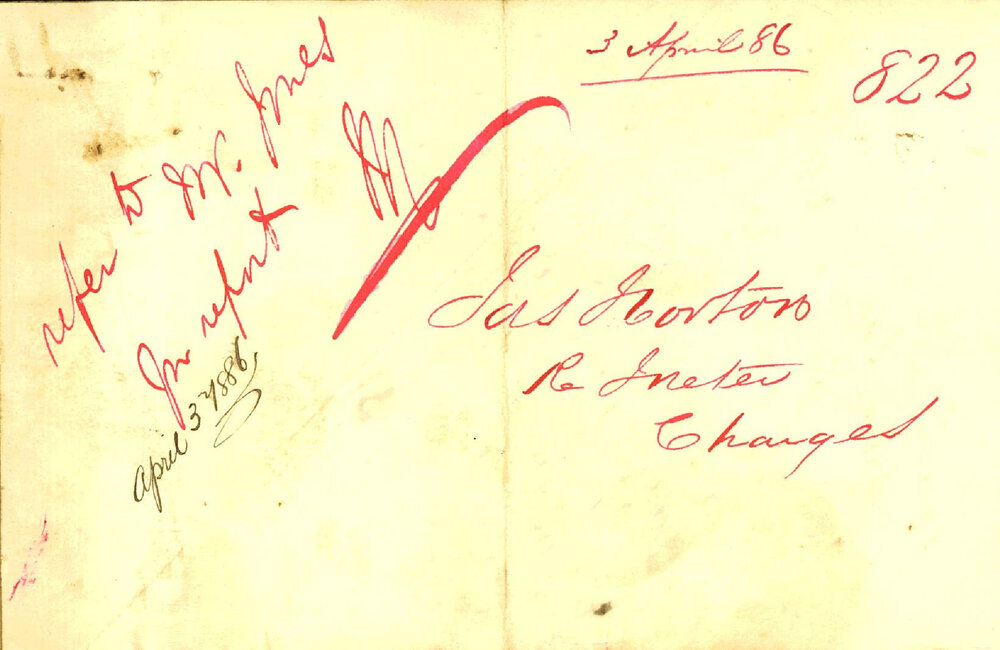 3 April 86
822
refer to Mr. Jones
for report
April 3rd 1886
Jas Norton
Re Meter
Charges